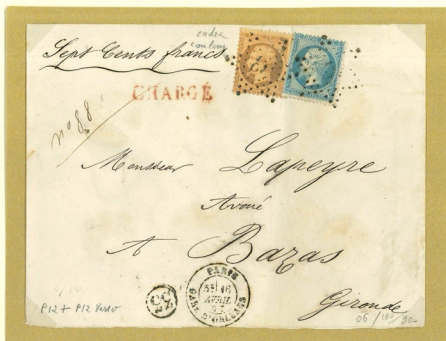 Sept Cents francs
CHARGÉ
n° 88
Monsieur Lapeyre
Avoué
A Bazas
Gironde
PARIS
16
AVRIL
GARE D'ORLEANS
P12 + P12 Verso